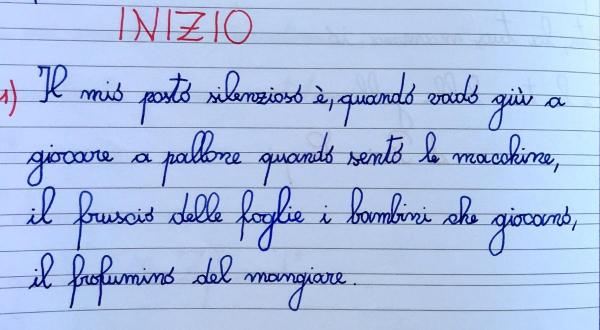 INIZIO
1) Il mio posto silenzioso è, quando vado giù a
giocare a pallone quando sento le macchine,
il fruscio delle foglie i bambini che giocano,
il profumino del mangiare.